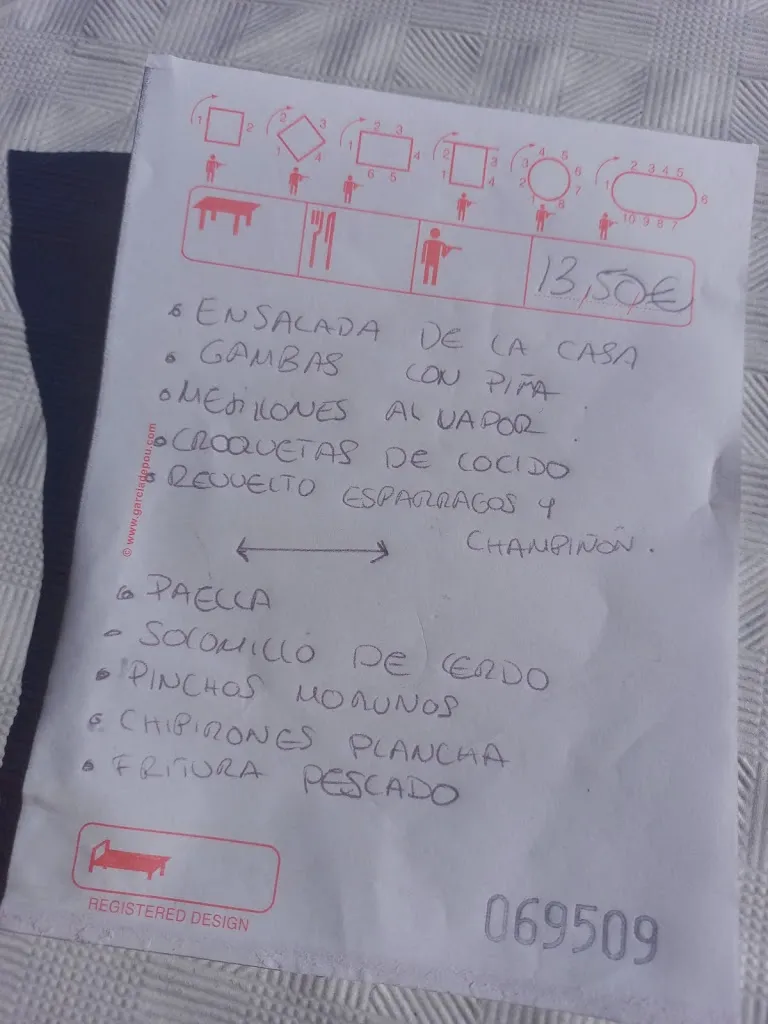 1 2
2 3 1 4
2 3 1 4 6 5
2 3 1 4
4 5 3 6 2 7 1 8
2 3 4 5 1 6 10 9 8 7
13,50€
ENSALADA DE LA CASA
GAMBAS CON PIÑA
MEJILLONES AL VAPOR
CROQUETAS DE COCIDO
REVUELTO ESPARRAGOS Y
CHAMPIÑÓN.
PAELLA
SOLOMILLO DE CERDO
PINCHOS MORUNOS
CHIPIRONES PLANCHA
FRITURA PESCADO
© www.garciadepou.com
REGISTERED DESIGN
069509